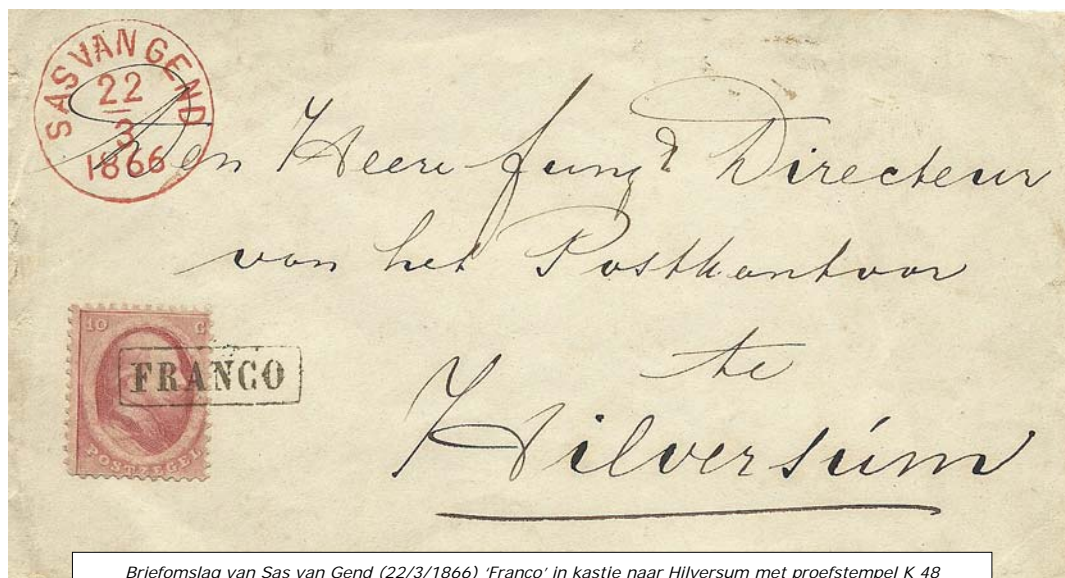 SAS VAN GEND
22
3
1866
Den Heere fungd Directeur
van het Postkantoor
10 C
FRANCO
POSTZEGEL
te
Hilversúm
Briefomslag van Sas van Gend (22/3/1866) 'Franco' in kastje naar Hilversum met proefstempel K 48